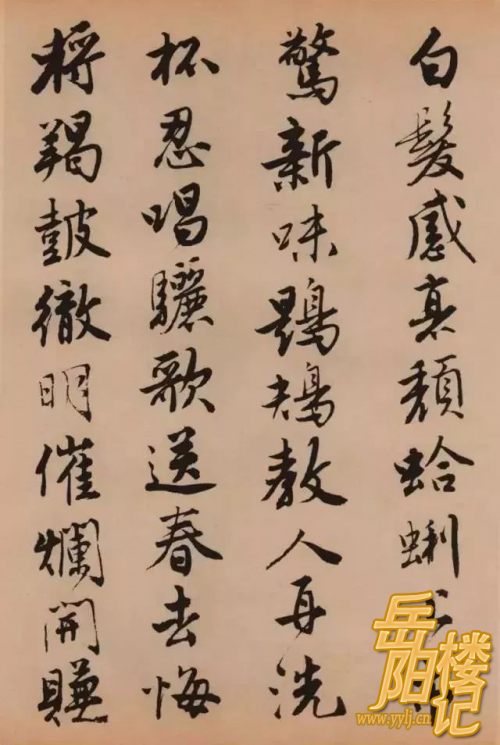 白髮感衰頹蛤蜊
驚新味鶗鴂教人再洗
杯忍唱驪歌送春去悔
將羯鼓徹明催爛開賺
岳阳楼记
www.yylj.cn